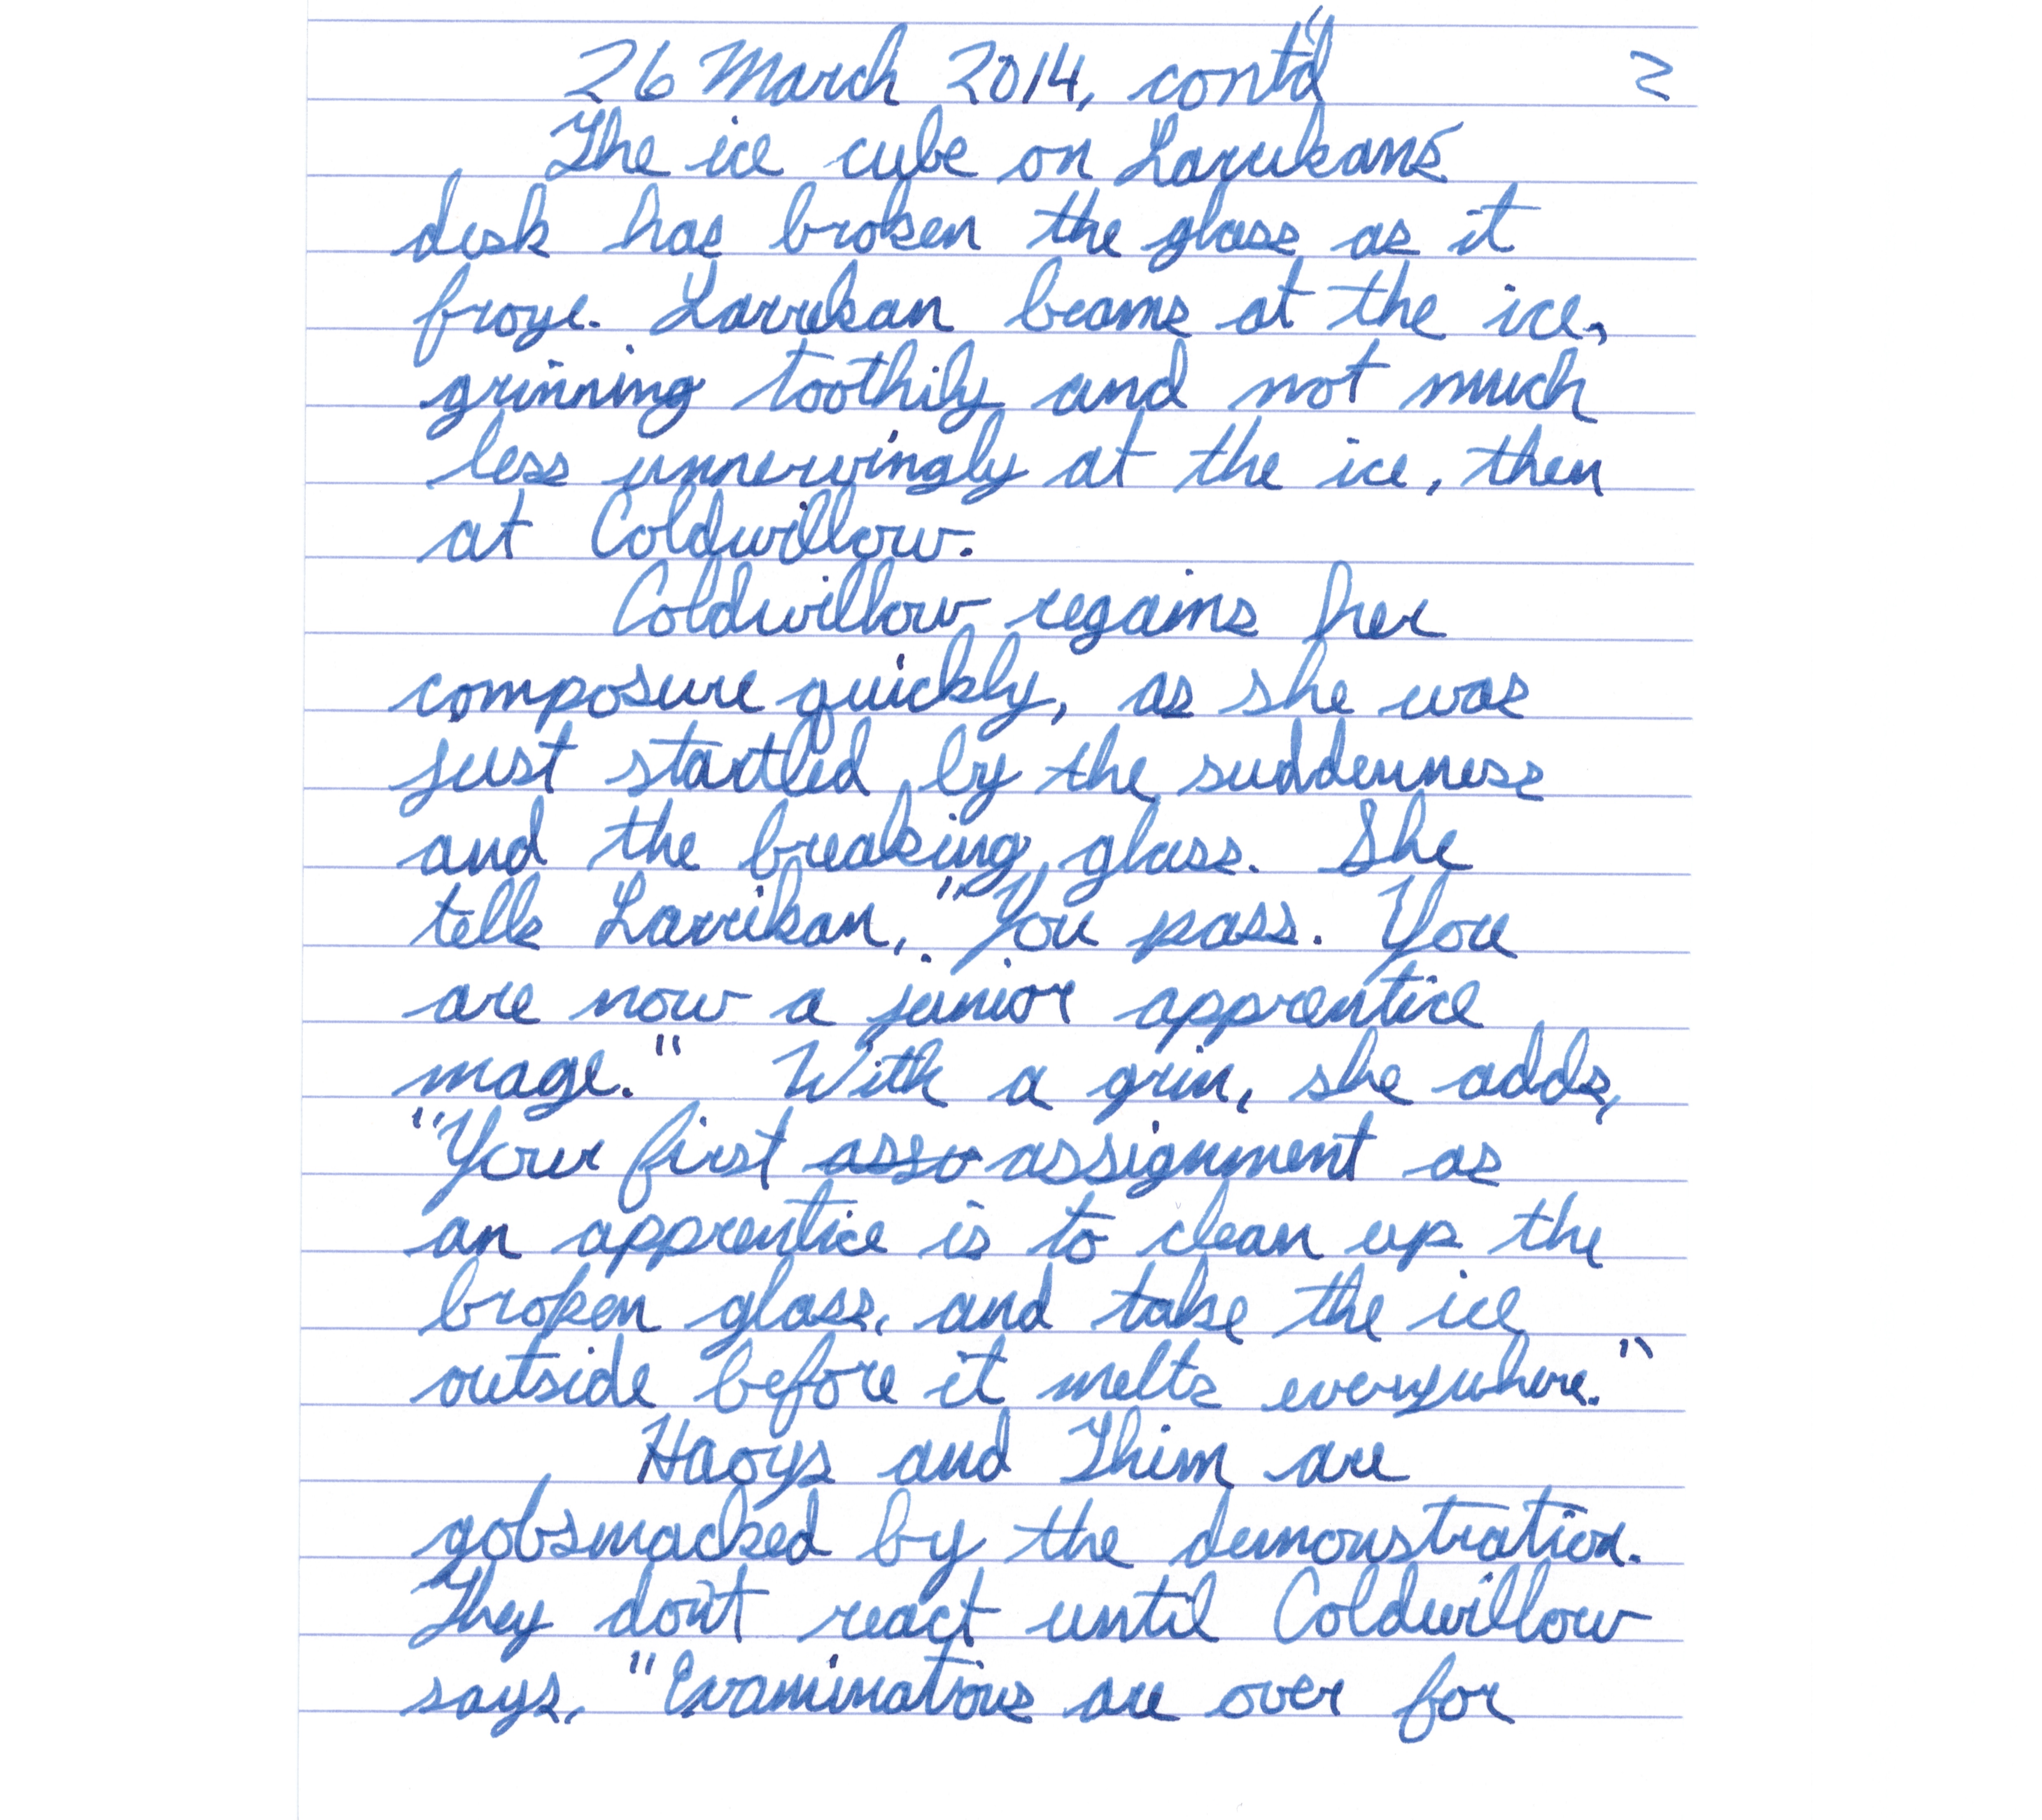 26 March 2014, cont'd 2
The ice cube on Larrikan's
desk has broken the glass as it
froze. Larrikan beams at the ice,
grinning toothily and not much
less unnervingly at the ice, then
at Coldwillow.
Coldwillow regains her
composure quickly, as she was
just startled by the suddenness
and the breaking glass. She
tells Larrikan, "You pass. You
are now a junior apprentice
mage." With a grin, she adds,
"Your first asso assignment as
an apprentice is to clean up the
broken glass, and take the ice
outside before it melts everywhere."
Haoys and Thim are
gobsmacked by the demonstration.
They don't react until Coldwillow
says, "Examinations are over for